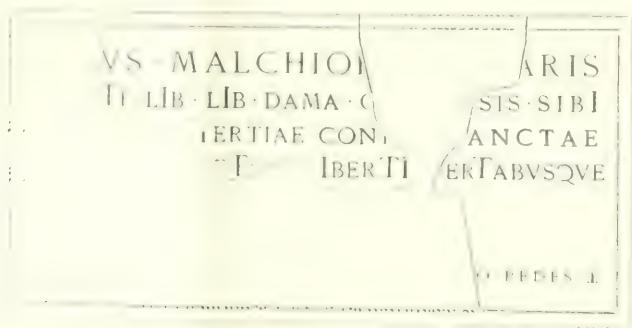 VS · MALCHIO ARIS
LIB · LIB · DAMA · SIS · SIBI
ERTIAE CON ANCTAE
IBERTI ERTABVSQVE
PEDES